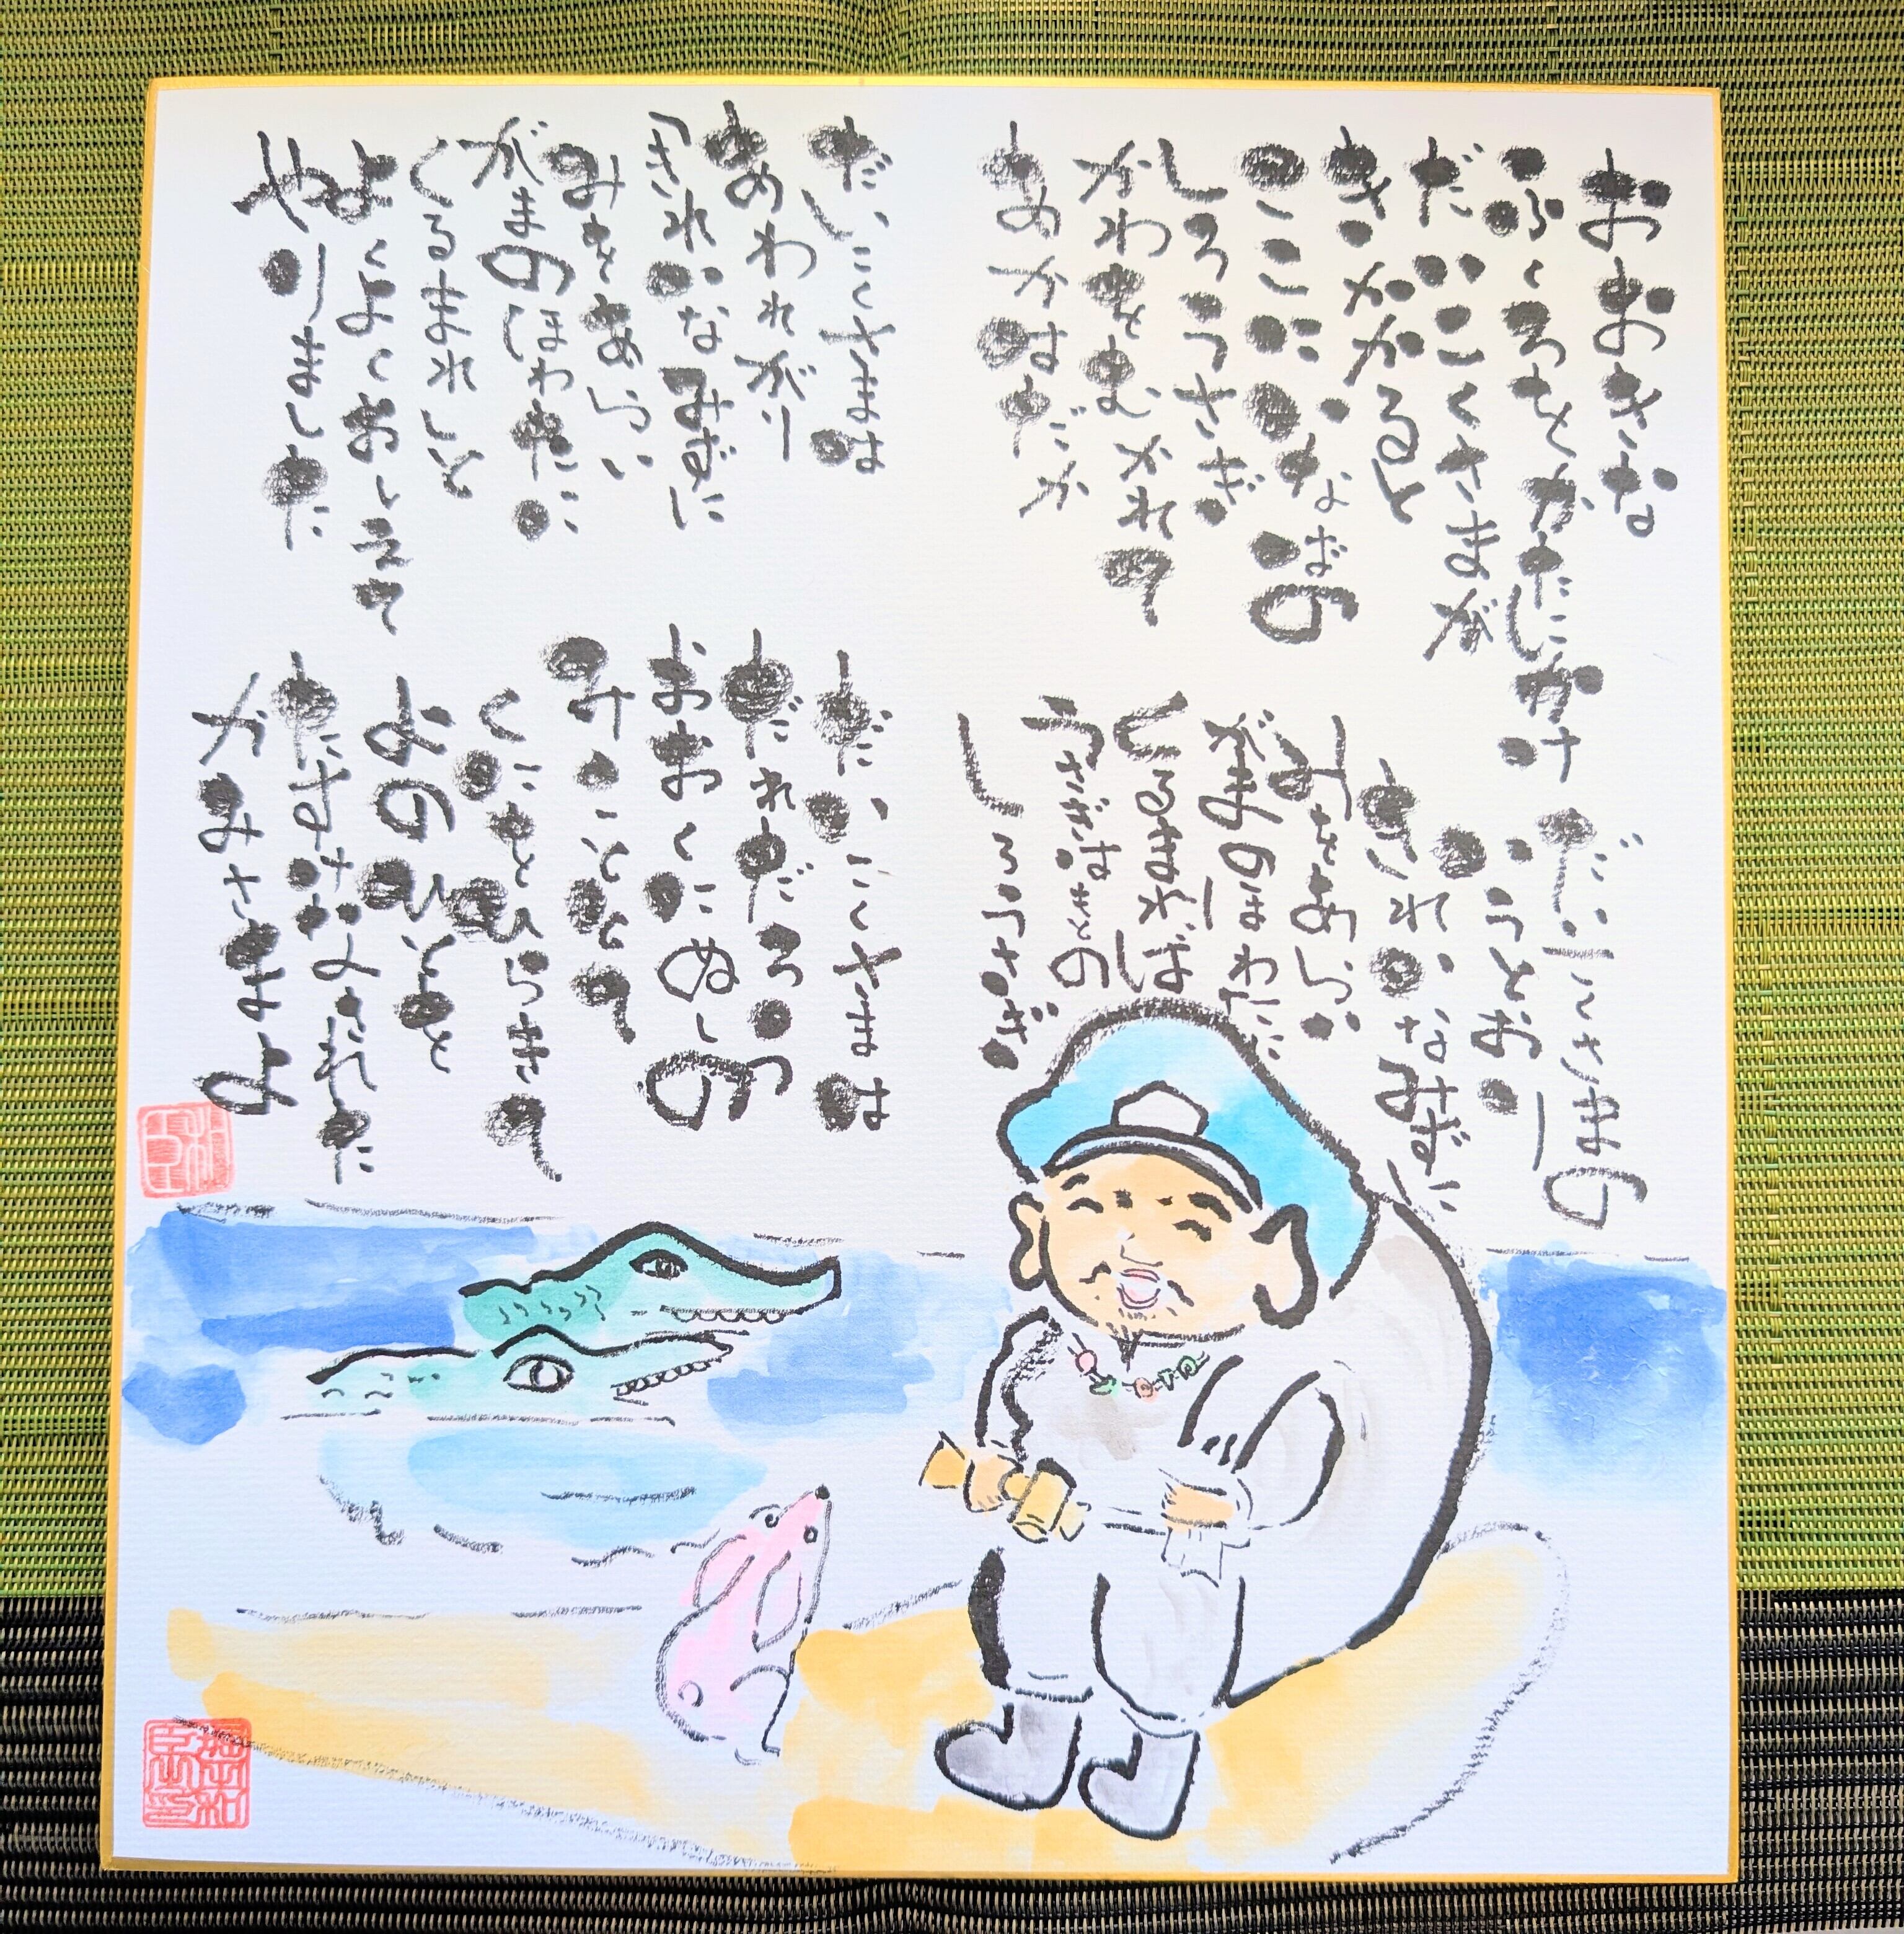 おおきな
ふくろをかたにかけ
だいこくさまが
きかかると
ここにいなばの
しろうさぎ
かわをむかれて
あかはだか
だいこくさまは
あわれがり
きれいなみずに
みをあらい
がまのほわたに
くるまれと
よくよくおしえて
やりました
だいこくさまの
いうとおり
きれいなみずに
みをあらい
がまのほわたに
くるまれば
うさぎはもとの
しろうさぎ
だいこくさまは
だれだろ
おおくにぬしの
みこととて
くにをひらきて
よのひとを
たすけなされた
かみさまよ